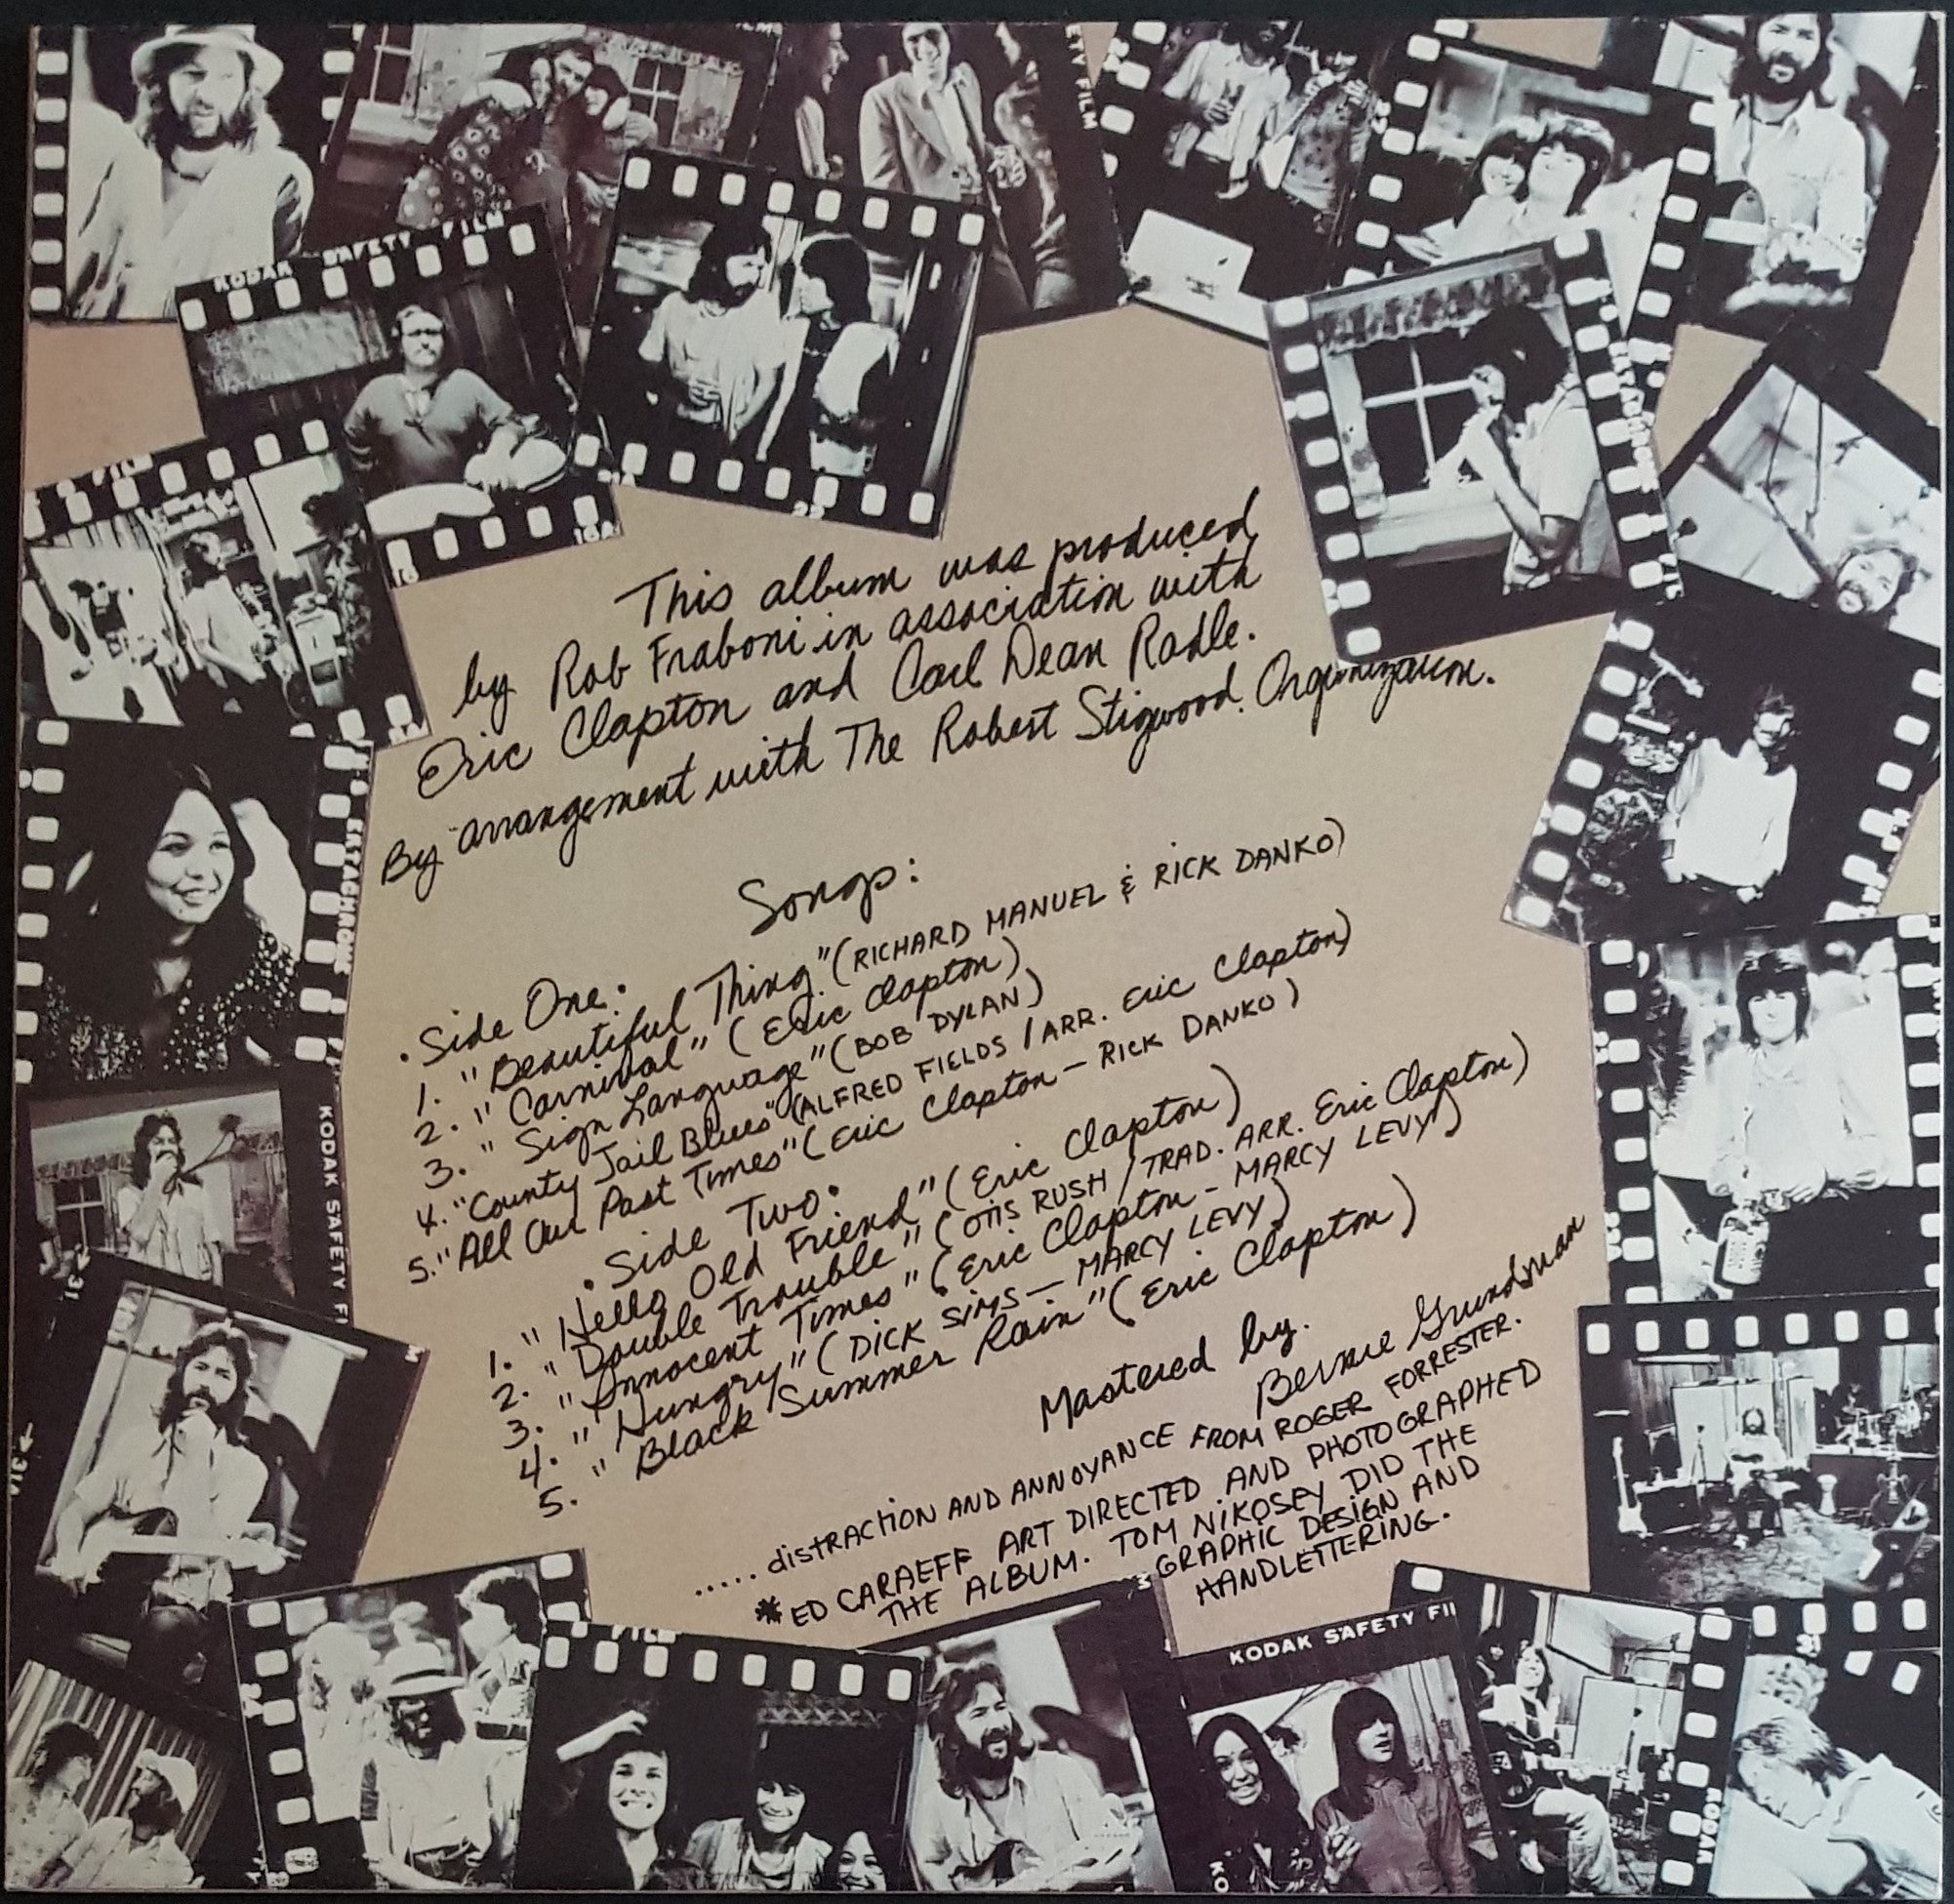 KODAK SAFETY FILM
ETY FILM
FILM
16
16A
22
This album was produced
by Rob Fraboni in association with
Eric Clapton and Carl Dean Radle.
By arrangement with The Robert Stigwood Organization.
Songs:
• Side One:
1. "Beautiful Thing" (RICHARD MANUEL & RICK DANKO)
2. "Carnival" (Eric Clapton)
3. "Sign Language" (BOB DYLAN)
4. "County Jail Blues" (ALFRED FIELDS / ARR. Eric Clapton)
5. "All Our Past Times" (Eric Clapton — RICK DANKO)
• Side Two:
1. "Hello Old Friend" (Eric Clapton)
2. "Double Trouble" (OTIS RUSH / TRAD. ARR. Eric Clapton)
3. "Innocent Times" (Eric Clapton - MARCY LEVY)
4. "Hungry" (DICK SIMS — MARCY LEVY)
5. "Black Summer Rain" (Eric Clapton)
Mastered by.
Bernie Grundman
..... distRACTiON AND ANNOYANCE FROM ROGER FORRESTER.
* ED CARAEFF ART DIRECTED AND PHOTOGRAPHED
THE ALBUM. TOM NiKOSEY DID THE
GRAPHIC DESiGN AND
HANDLETTERING.
EKTACHROME
KODAK SAFETY F
31
31A
FILM
KODAK SAFETY FI
31
KODAK
KO